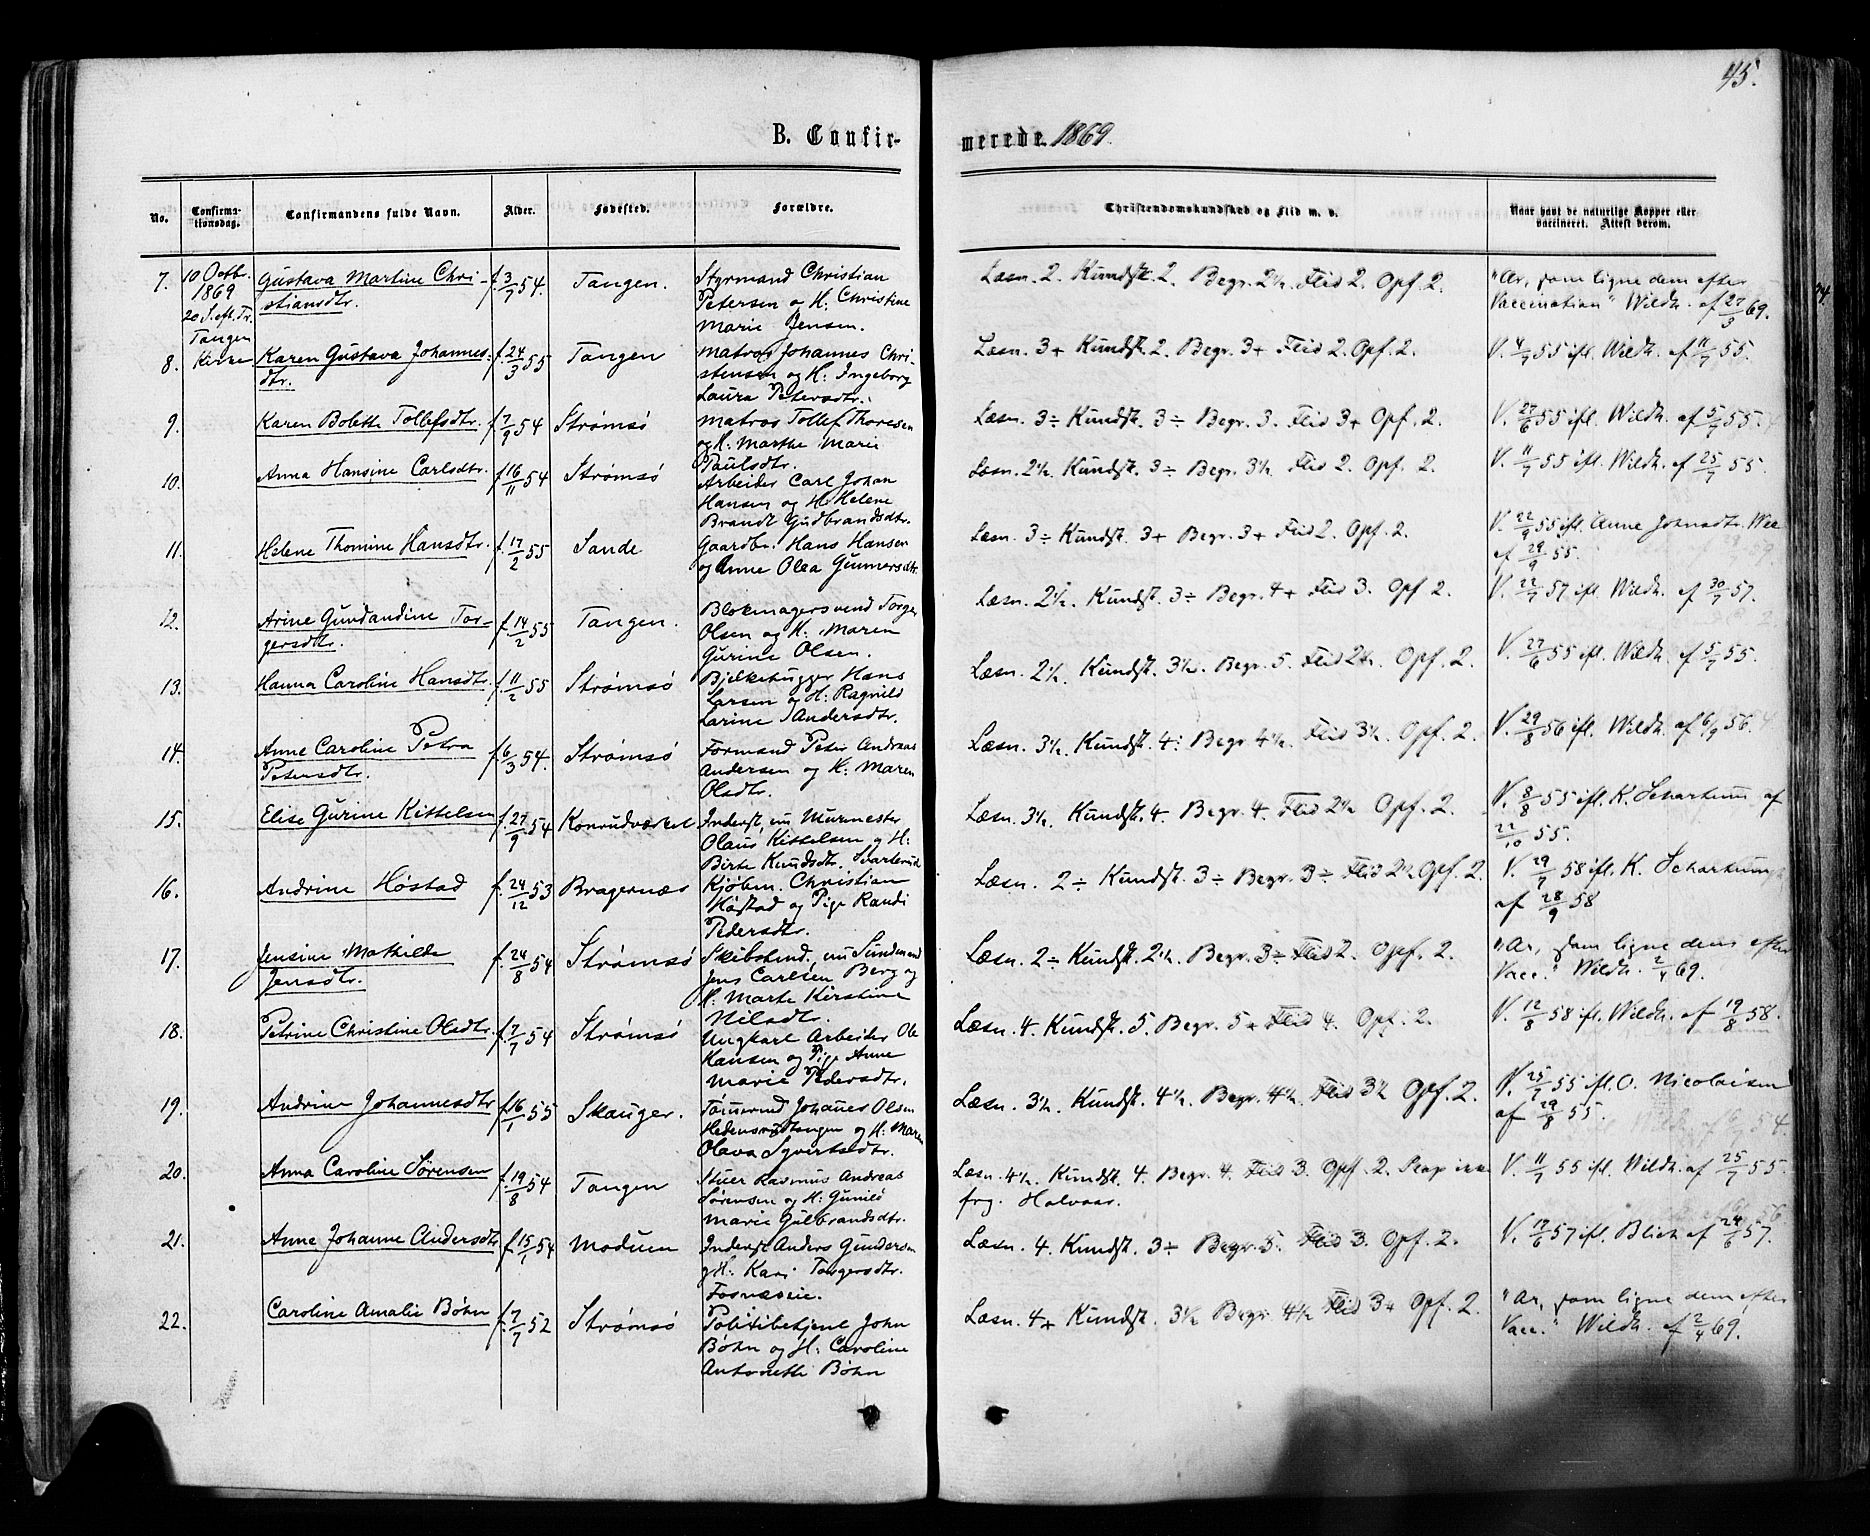 45.
B. Confir-
merede 1869.
No.
Confirma-
tionsdag.
Confirmandens fulde Navn.
Alder.
Fødested.
Forældre.
Christendomskundskab og Flid m. v.
Naar havt de naturlige Kopper eller
vaccineret. Attest derom.
10 Octbr.
1869
20 S. eft. Tr.
Tangen
Kirke
7. Gustava Martine Chri- f. 3/7 54. Tangen. Styrmand Christian Læsn. 2. Kundsk. 2. Begr. 2½. Flid 2. Opf. 2. "Ar, som ligne dem efter
stiansdtr. Petersen og H. Christine Vaccination" Wildh. af 27/3 69.
Marie Jensen.
8. Karen Gustava Johannes- f. 24/3 55 Tangen Matros Johannes Chri- Læsn. 3+ Kundsk. 2. Begr. 3+ Flid 2. Opf. 2. V. 4/7 55 ifl. Wildh. af 11/7 55.
dtr. stensen og H: Ingeborg
Laura Petersdtr.
9. Karen Bolette Tollefsdtr. f. 7/9 54 Strømsø Matros Tollef Thoresen Læsn. 3÷ Kundsk. 3÷ Begr. 3. Flid 3+ Opf. 2. V. 27/6 55 ifl. Wildh. af 5/7 55.
og H. Marthe Marie
Paulsdtr.
10. Anna Hansine Carlsdtr. f. 16/11 54 Strømsø Arbeider Carl Johan Læsn. 2½. Kundsk. 3÷ Begr. 3½ Flid 2. Opf. 2. V. 11/7 55 ifl. Wildh. af 25/7 55.
Hansen og H. Helene
Brandt Gudbrandsdtr.
11. Helene Thomine Hansdtr. f. 17/2 55 Sande Gaardbr. Hans Hansen Læsn. 3÷ Kundsk. 3+ Begr. 3+ Flid 2. Opf. 2. V. 22/9 55 ifl. Anne Johnsdtr. Wee
og Anne Olea Gunnersdtr. af 29/9 55.
12. Arine Gundandine Tor- f. 14/2 55 Tangen. Blokmagersvend Torger Læsn. 2½. Kundsk. 3÷ Begr. 4+ Flid 3. Opf. 2. V. 22/7 57 ifl. Wildh. af 30/7 57.
gersdtr. Olsen og H. Maren
Gurine Olsen.
13. Hanna Caroline Hansdtr. f. 11/2 55 Strømsø Bjelkehugger Hans Læsn. 2½. Kundsk. 3½. Begr. 5. Flid 2+. Opf. 2. V. 27/6 55 ifl. Wildh. af 5/7 55.
Larsen og H: Ragnild
Larine Andersdtr.
14. Anne Caroline Petra f. 6/3 54. Strømsø Formand Peter Andreas Læsn. 3½. Kundsk. 4÷ Begr. 4½. Flid 3½. Opf. 2. V. 29/8 56 ifl. Wildh. af 6/9 56.
Petersdtr. Andersen og H: Maren
Olsdtr.
15. Elise Gurine Kittelsen f. 27/9 54 Konrudværket Inderst, nu Murmester Læsn. 3½. Kundsk. 4. Begr. 4. Flid 2½ Opf. 2. V. 8/8 55 ifl. K. Scharkum af
Olaus Kittelsen og H: 22/10 55.
Birte Knudsdtr. Svarterud
16. Andrine Høstad f. 24/12 53 Bragernæs Kjøbm. Christian Læsn. 2÷ Kundsk. 3÷ Begr. 3÷ Flid 2½ Opf. 2. V. 29/7 58 ifl. K. Scharkum
Høstad og Pige Randi af 28/9 58
Pedersdtr.
17. Jensine Mathilde f. 24/8 54 Strømsø Skibstmd. nu Sundmand Læsn. 2÷ Kundsk. 2½. Begr. 3÷ Flid 2. Opf. 2. "Ar, som ligne dens efter
Jensdtr. Jens Carlsen Berg og Vacc." Wildh. 2/4 69.
H. Marte Kirstine
Nilsdtr.
18. Petrine Christine Olsdtr. f. 7/7 54 Strømsø Ungkarl Arbeider Ole Læsn. 4. Kundsk. 5. Begr. 5+ Flid 4. Opf. 2. V. 12/8 58 ifl. Wildh. af 19/8 58.
Hansen og Pige Anne
Marie Pedersdtr.
19. Andrine Johannesdtr f. 16/1 55 Skauger. Tømmermd Johannes Olsen Læsn. 3½. Kundsk. 4½. Begr. 4½ Flid 3½ Opf. 2. V. 25/7 55 ifl. O. Nicolaisen
Hedensrudtangen og H: Maren af 29/8 55.
Olava Syvertsdtr.
20. Anna Caroline Sørensen f. 19/8 54 Tangen Stuer Rasmus Andreas Læsn. 4½. Kundsk. 4. Begr. 4. Flid 3. Opf. 2. V. 11/7 55 ifl. Wildh. af 25/7 55.
Sørensen og H: Gunild frg. Halvaar.
Marie Gulbrandsdtr.
21. Anne Johanne Andersdtr f. 15/1 54 Moduem Inderst Anders Gundersen Læsn. 4. Kundsk. 3÷ Begr. 5. Flid 3. Opf. 2. V. 17/6 57 ifl. Blich af 24/6 57.
og H: Kari Torgersdtr.
Fosnæseie.
22. Caroline Amalie Bøhn f. 7/7 52 Strømsø Politibetjent John Læsn. 4+ Kundsk. 3½ Begr. 4½ Flid 3+ Opf. 2. "Ar, som ligne dem efter
Bøhn og H: Caroline Vacc." Wildh. af 2/4 69.
Antonette Bøhn